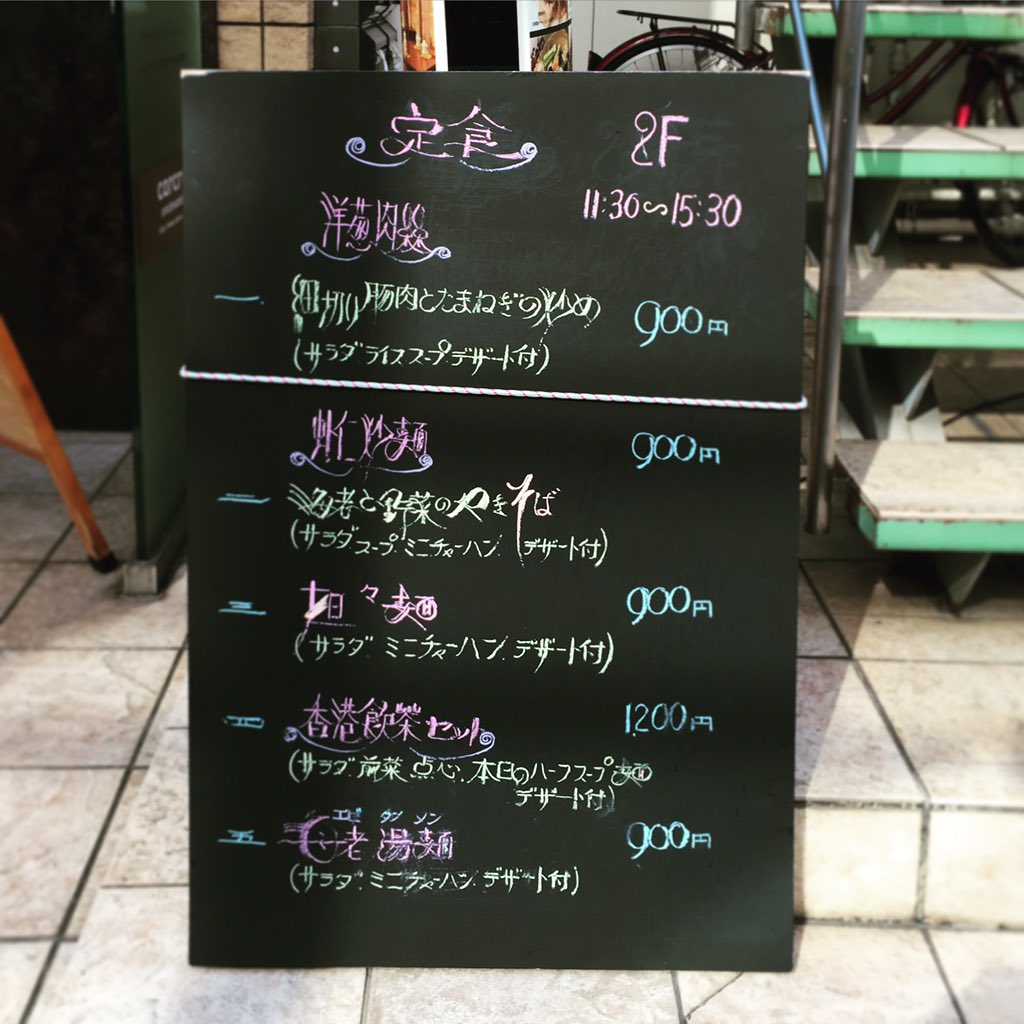 定食 2F
11:30〜15:30
洋葱肉絲
一. 細切り豚肉とたまねぎの炒め 900円
(サラダ ライス スープ デザート付)
蝦仁炒麺 900円
二 海老と野菜のやきそば
(サラダ スープ ミニチャーハン デザート付)
三 坦々麺 900円
(サラダ ミニチャーハン デザート付)
四 香港飲茶セット 1200円
(サラダ 前菜 点心 本日のハーフスープ麺
デザート付)
エビ タン ソン
五 老湯麺 900円
(サラダ ミニチャーハン デザート付)